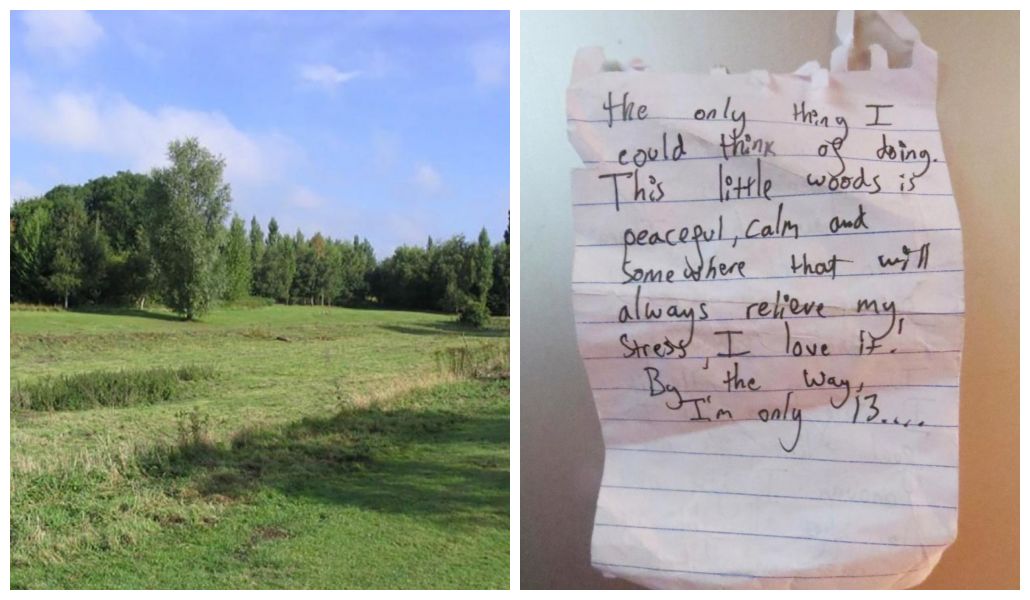 the only thing I
could think of doing.
This little woods is
peaceful, calm and
somewhere that will
always relieve my
stress, I love it!
By the way,
I'm only 13....